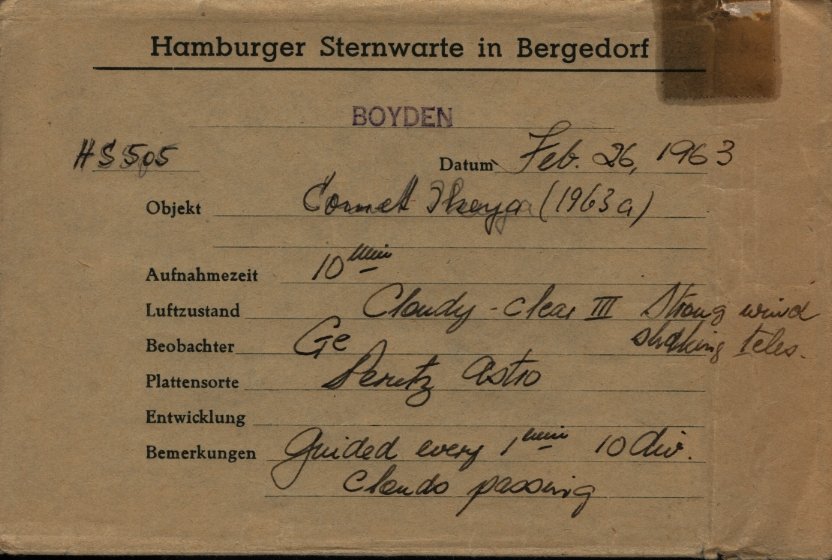 Hamburger Sternwarte in Bergedorf
BOYDEN
HS 505 Datum Feb. 26, 1963
Objekt Comet Ikeya (1963a)
Aufnahmezeit 10 min
Luftzustand Cloudy - clear III Strong wind
shaking teles.
Beobachter Ge
Plattensorte Perutz Astro
Entwicklung
Bemerkungen Guided every 1 min 10 div.
Clouds passing